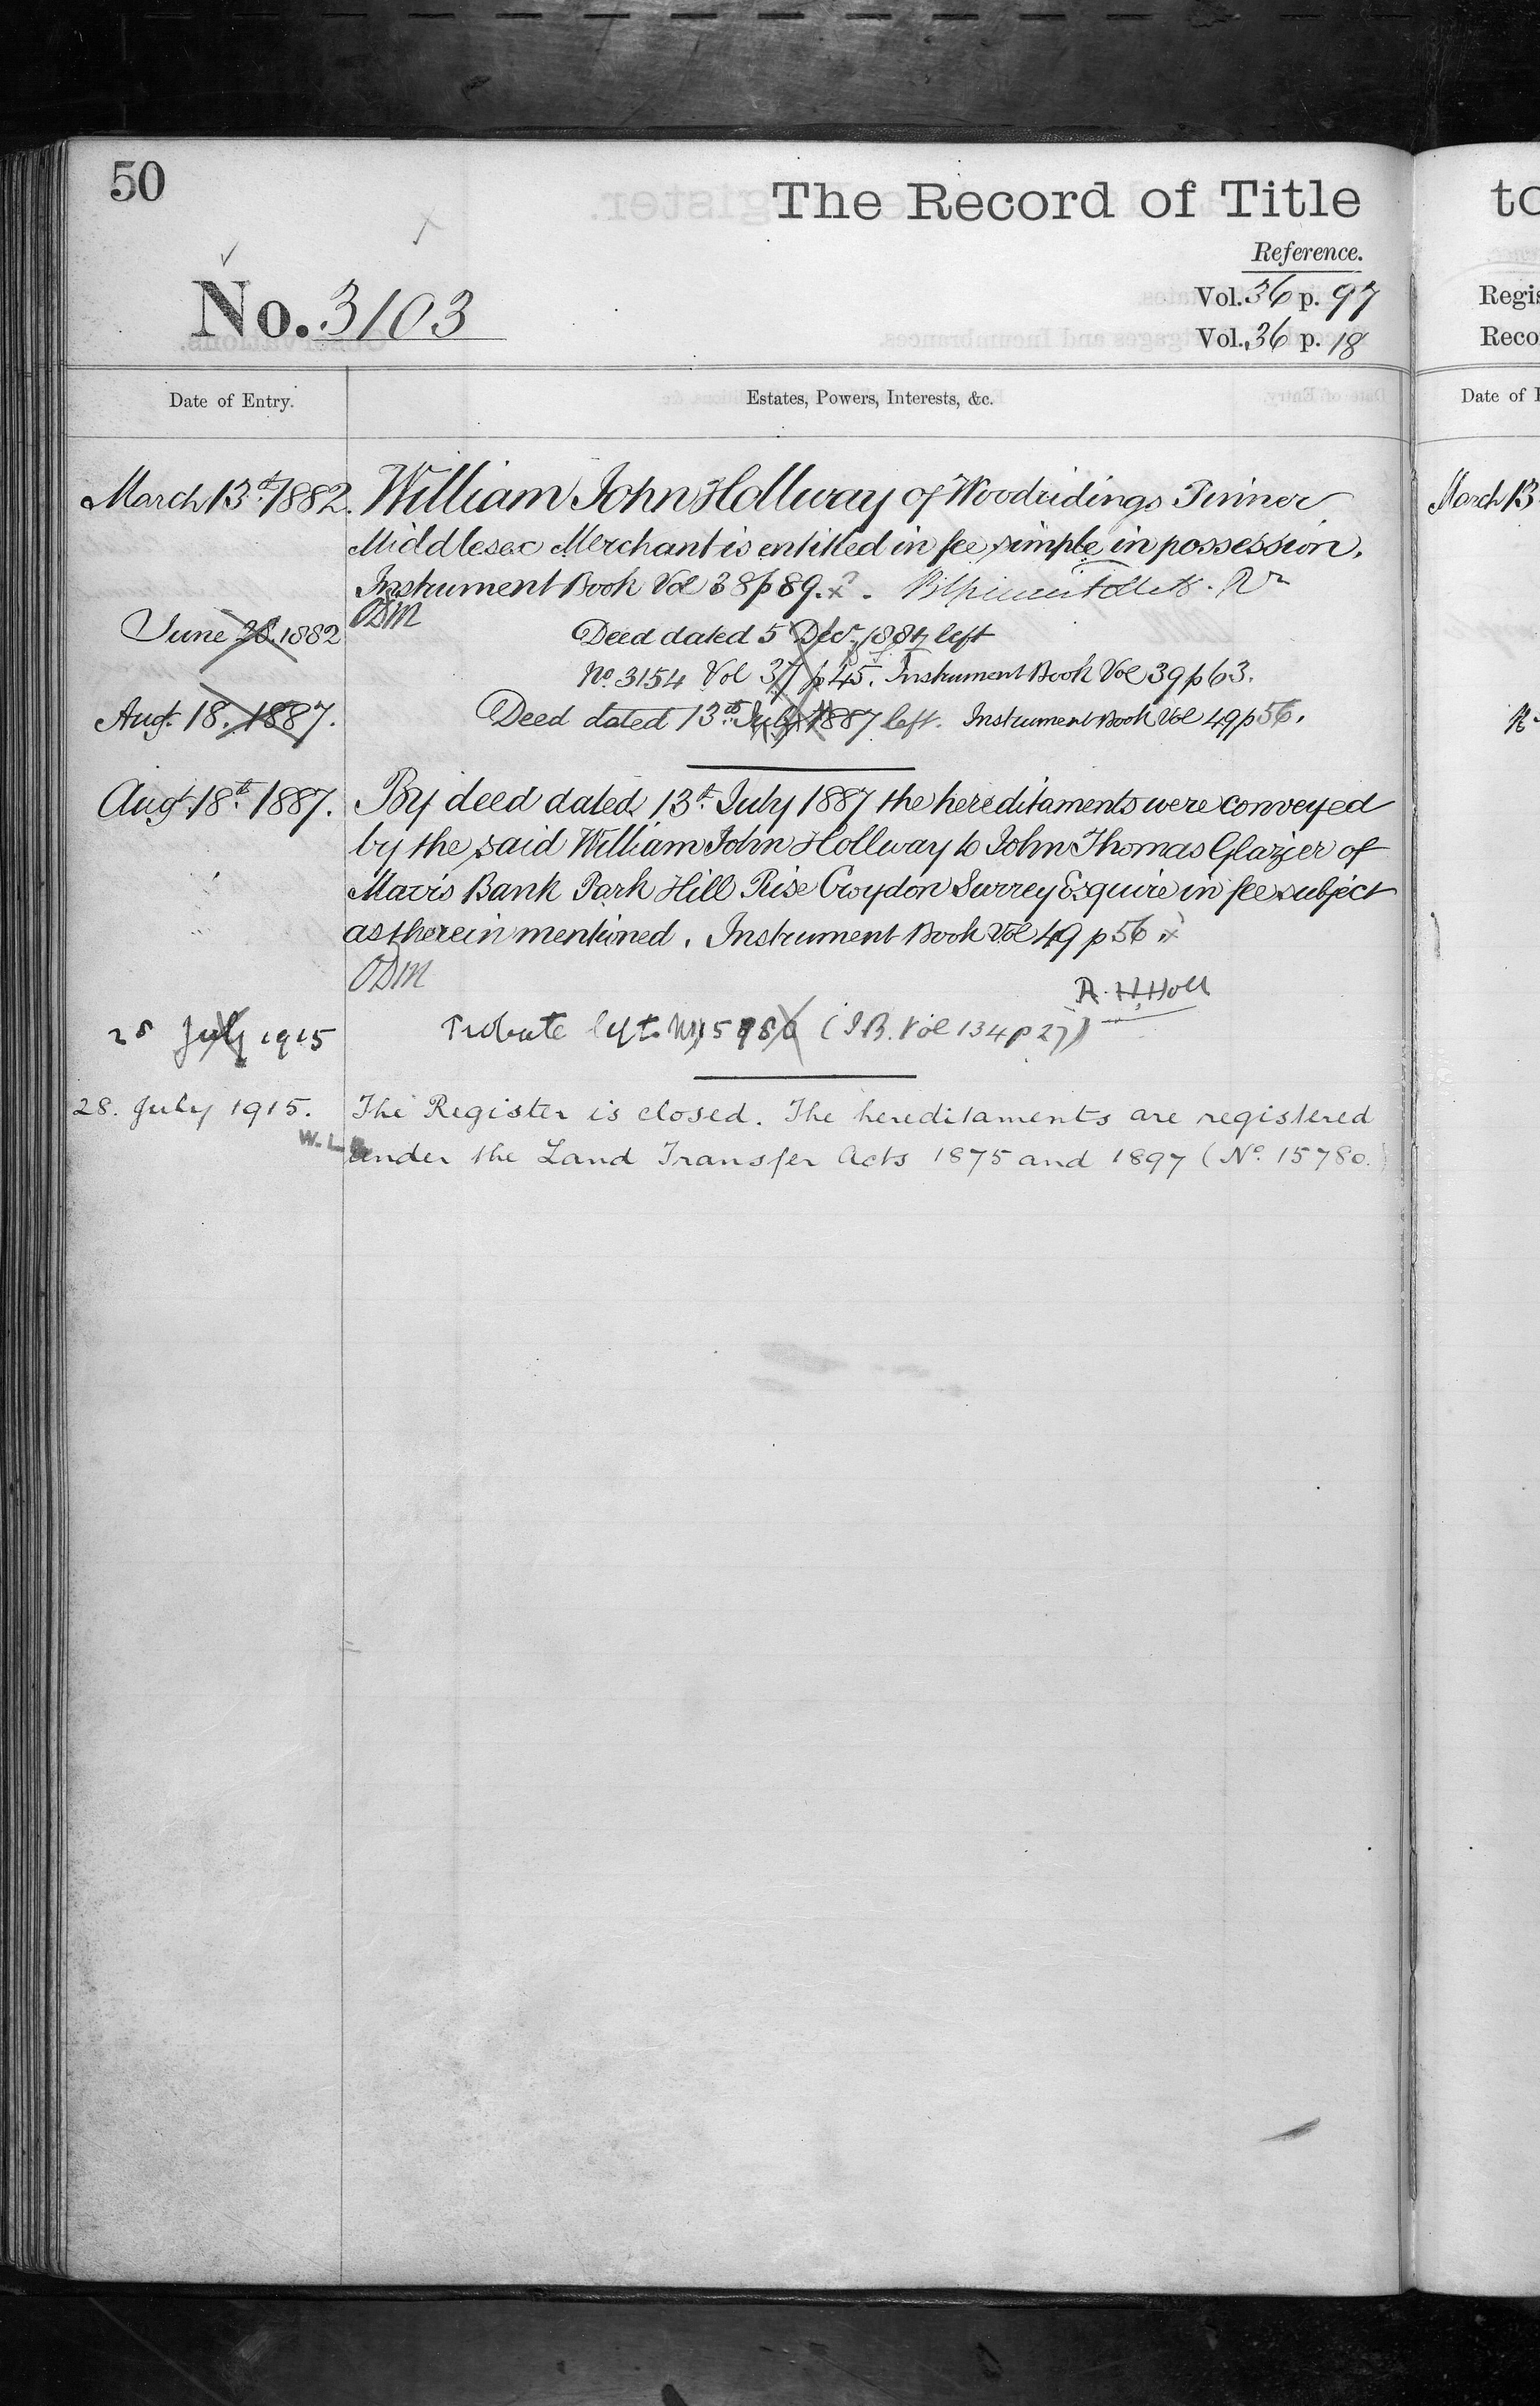 50
The Record of Title
Reference.
No. 3103
Vol. 36 p. 97
Vol. 36 p. 18
Date of Entry.
Estates, Powers, Interests, &c.
March 13th 1882. William John Hollway of Woodridings Pinner
Middlesex Merchant is entitled in fee simple in possession.
Instrument Book Vol 38 p 89.
ODM
June 28. 1882 Deed dated 5 Decr. left
No. 3154 Vol 37 p 45. Instrument Book Vol 39 p 63.
Augt. 18. 1887. Deed dated 13th July 1887 left. Instrument Book Vol 49 p 56.
Augt. 18th 1887. By deed dated 13th July 1887 the hereditaments were conveyed
by the said William John Hollway to John Thomas Glazier of
Mavis Bank Park Hill Rise Croydon Surrey Esquire in fee subject
as therein mentioned. Instrument Book Vol 49 p 56.
ODM
28 July 1915 Probate left (I.B. Vol 134 p 27)
28. July 1915. The Register is closed. The hereditaments are registered
W.L.
under the Land Transfer Acts 1875 and 1897 (No. 15780.)
to
Regis
Reco
Date of
March 13